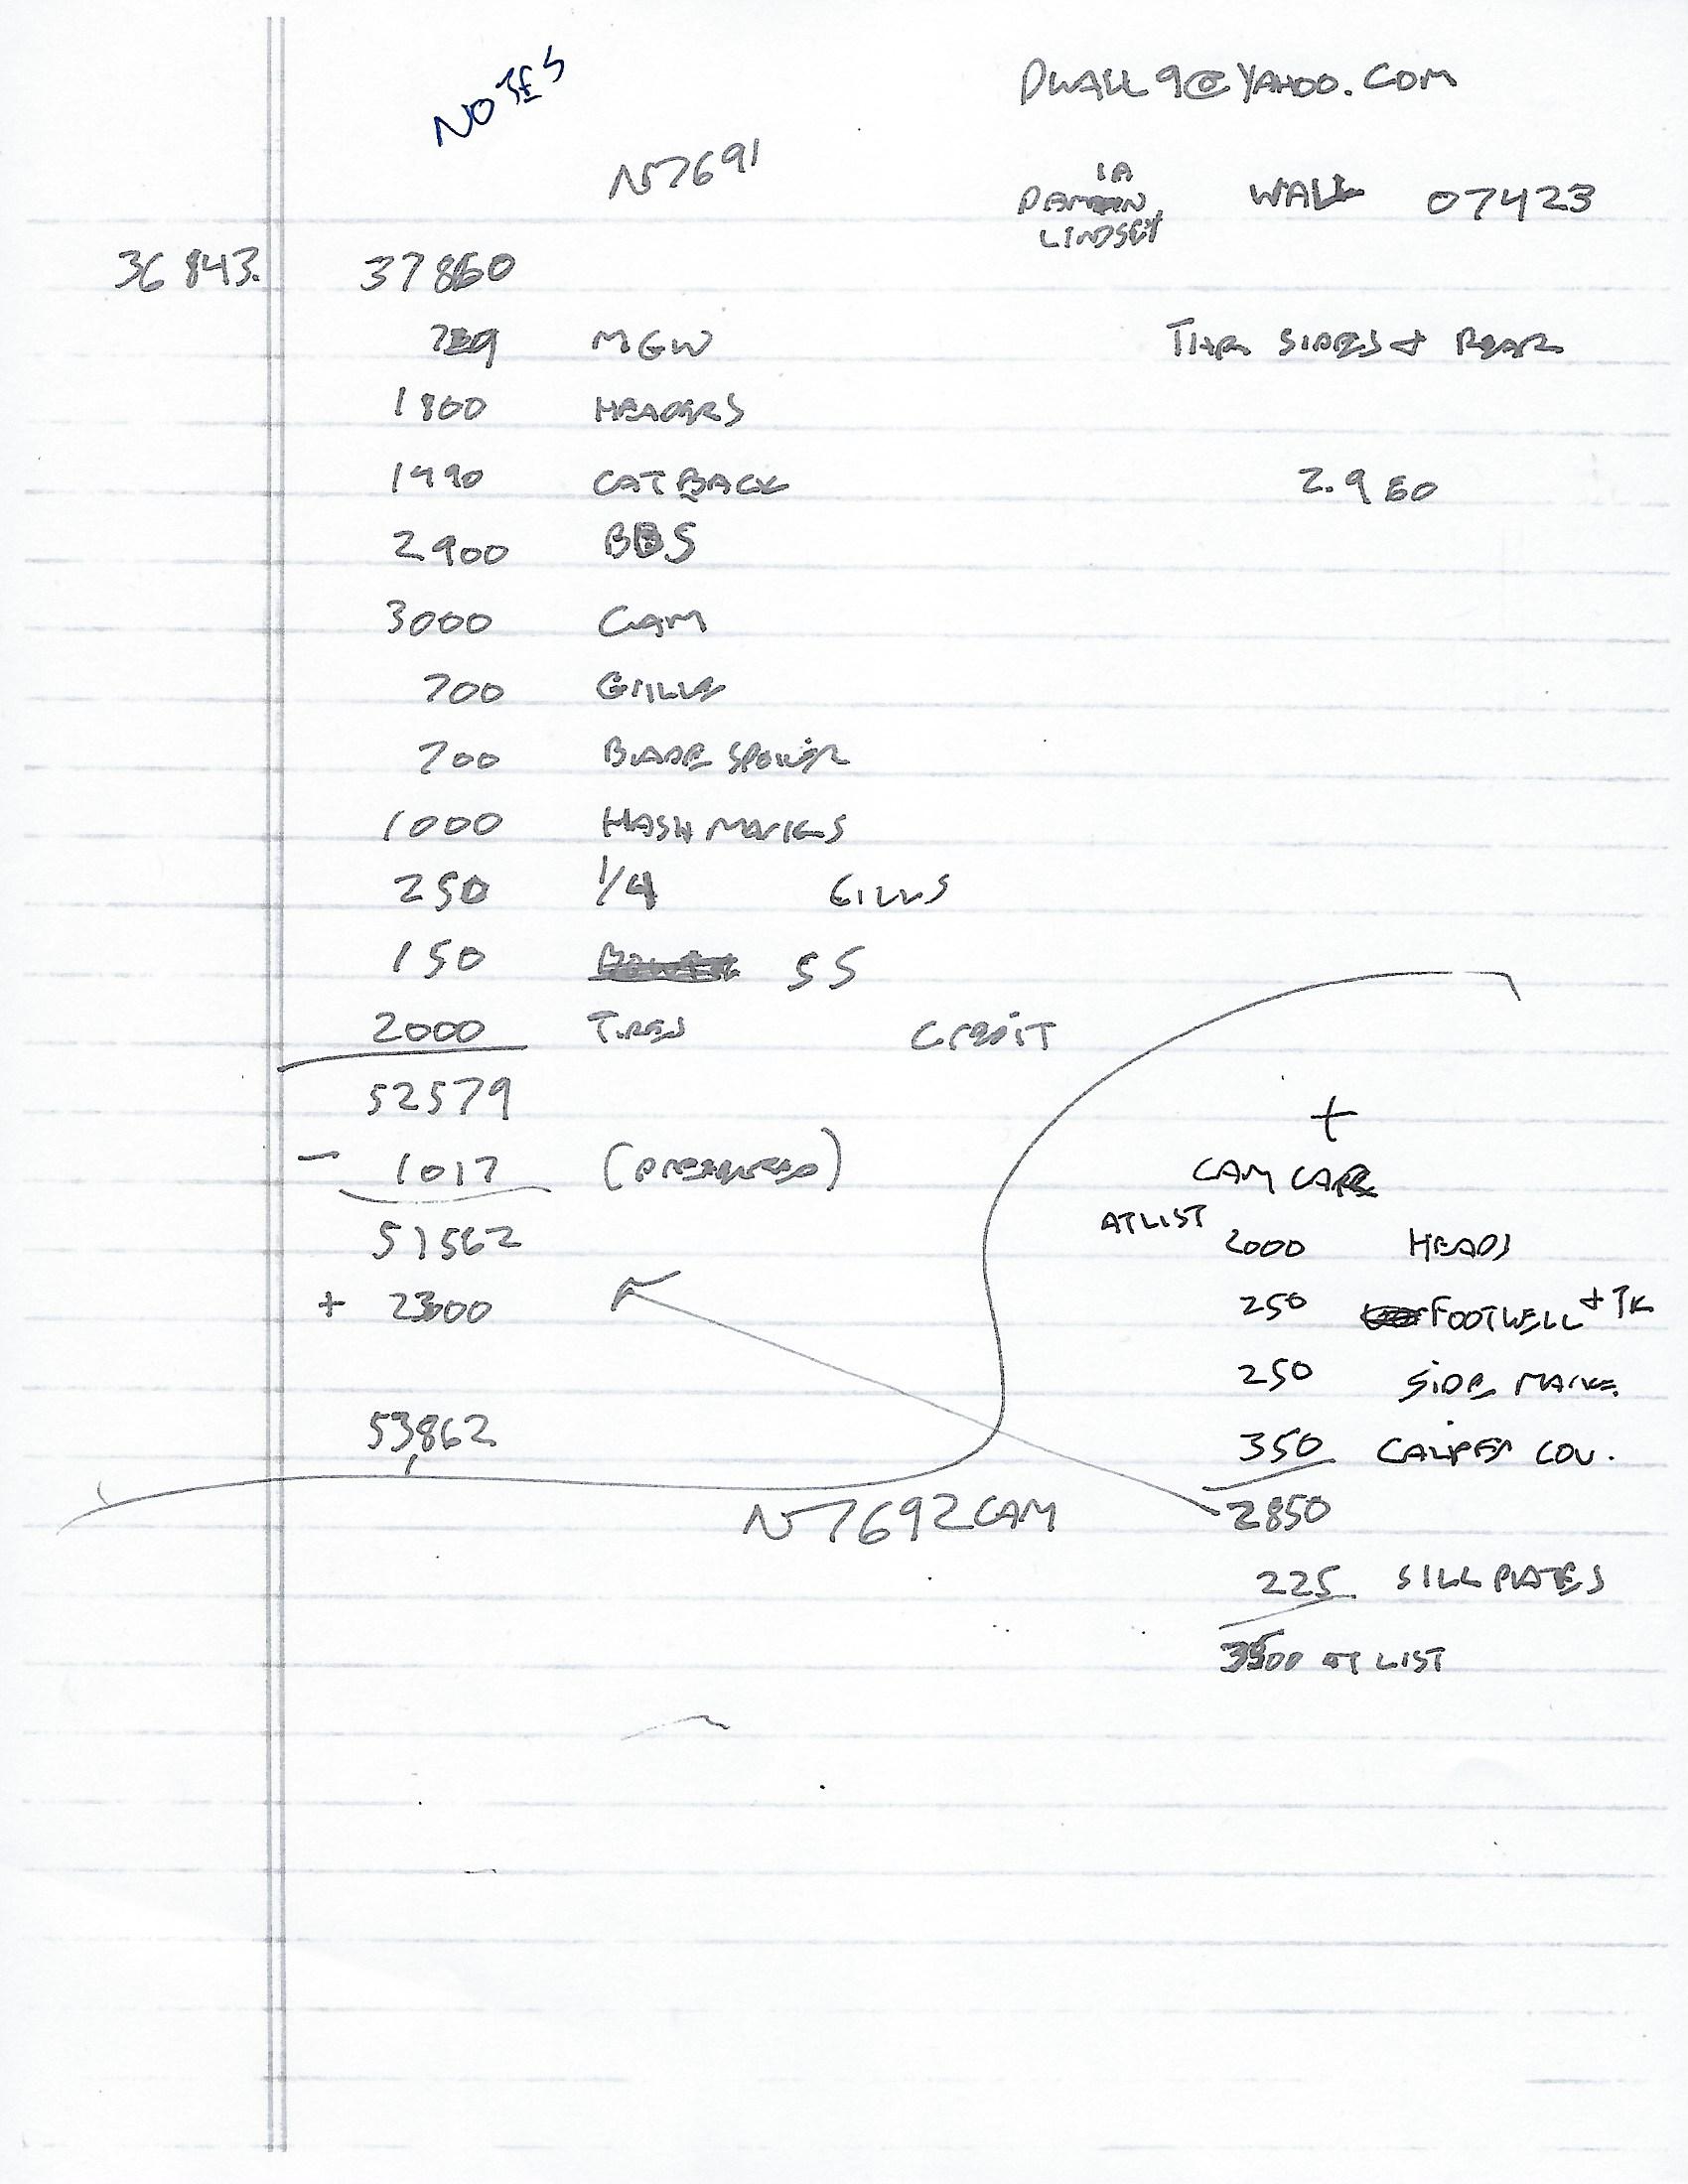 NOTES
DWALL9@YAHOO.COM
N7691
IA
DAMIEN WALL 07423
LINDSEY
36 843. 37860
789 MGW
1800 HEADERS
TINT SIDES + REAR
1490 CATBACK
2.9 60
2900 BBS
3000 CAM
700 GRILLE
700 BLADE SPOILER
1000 HASH MARKS
250 1/4 GILLS
150 SS
2000 TIRES CREDIT
52579
- 1017 (PREFERRED)
51562
+ 2300
53,862
+
CAM CARE
AT LIST 2000 HEADS
250 FOOTWELL + TK
250 SIDE MARKE.
350 CALIPER COV.
2850
N7692 CAM
225 SILL PLATES
3500 AT LIST